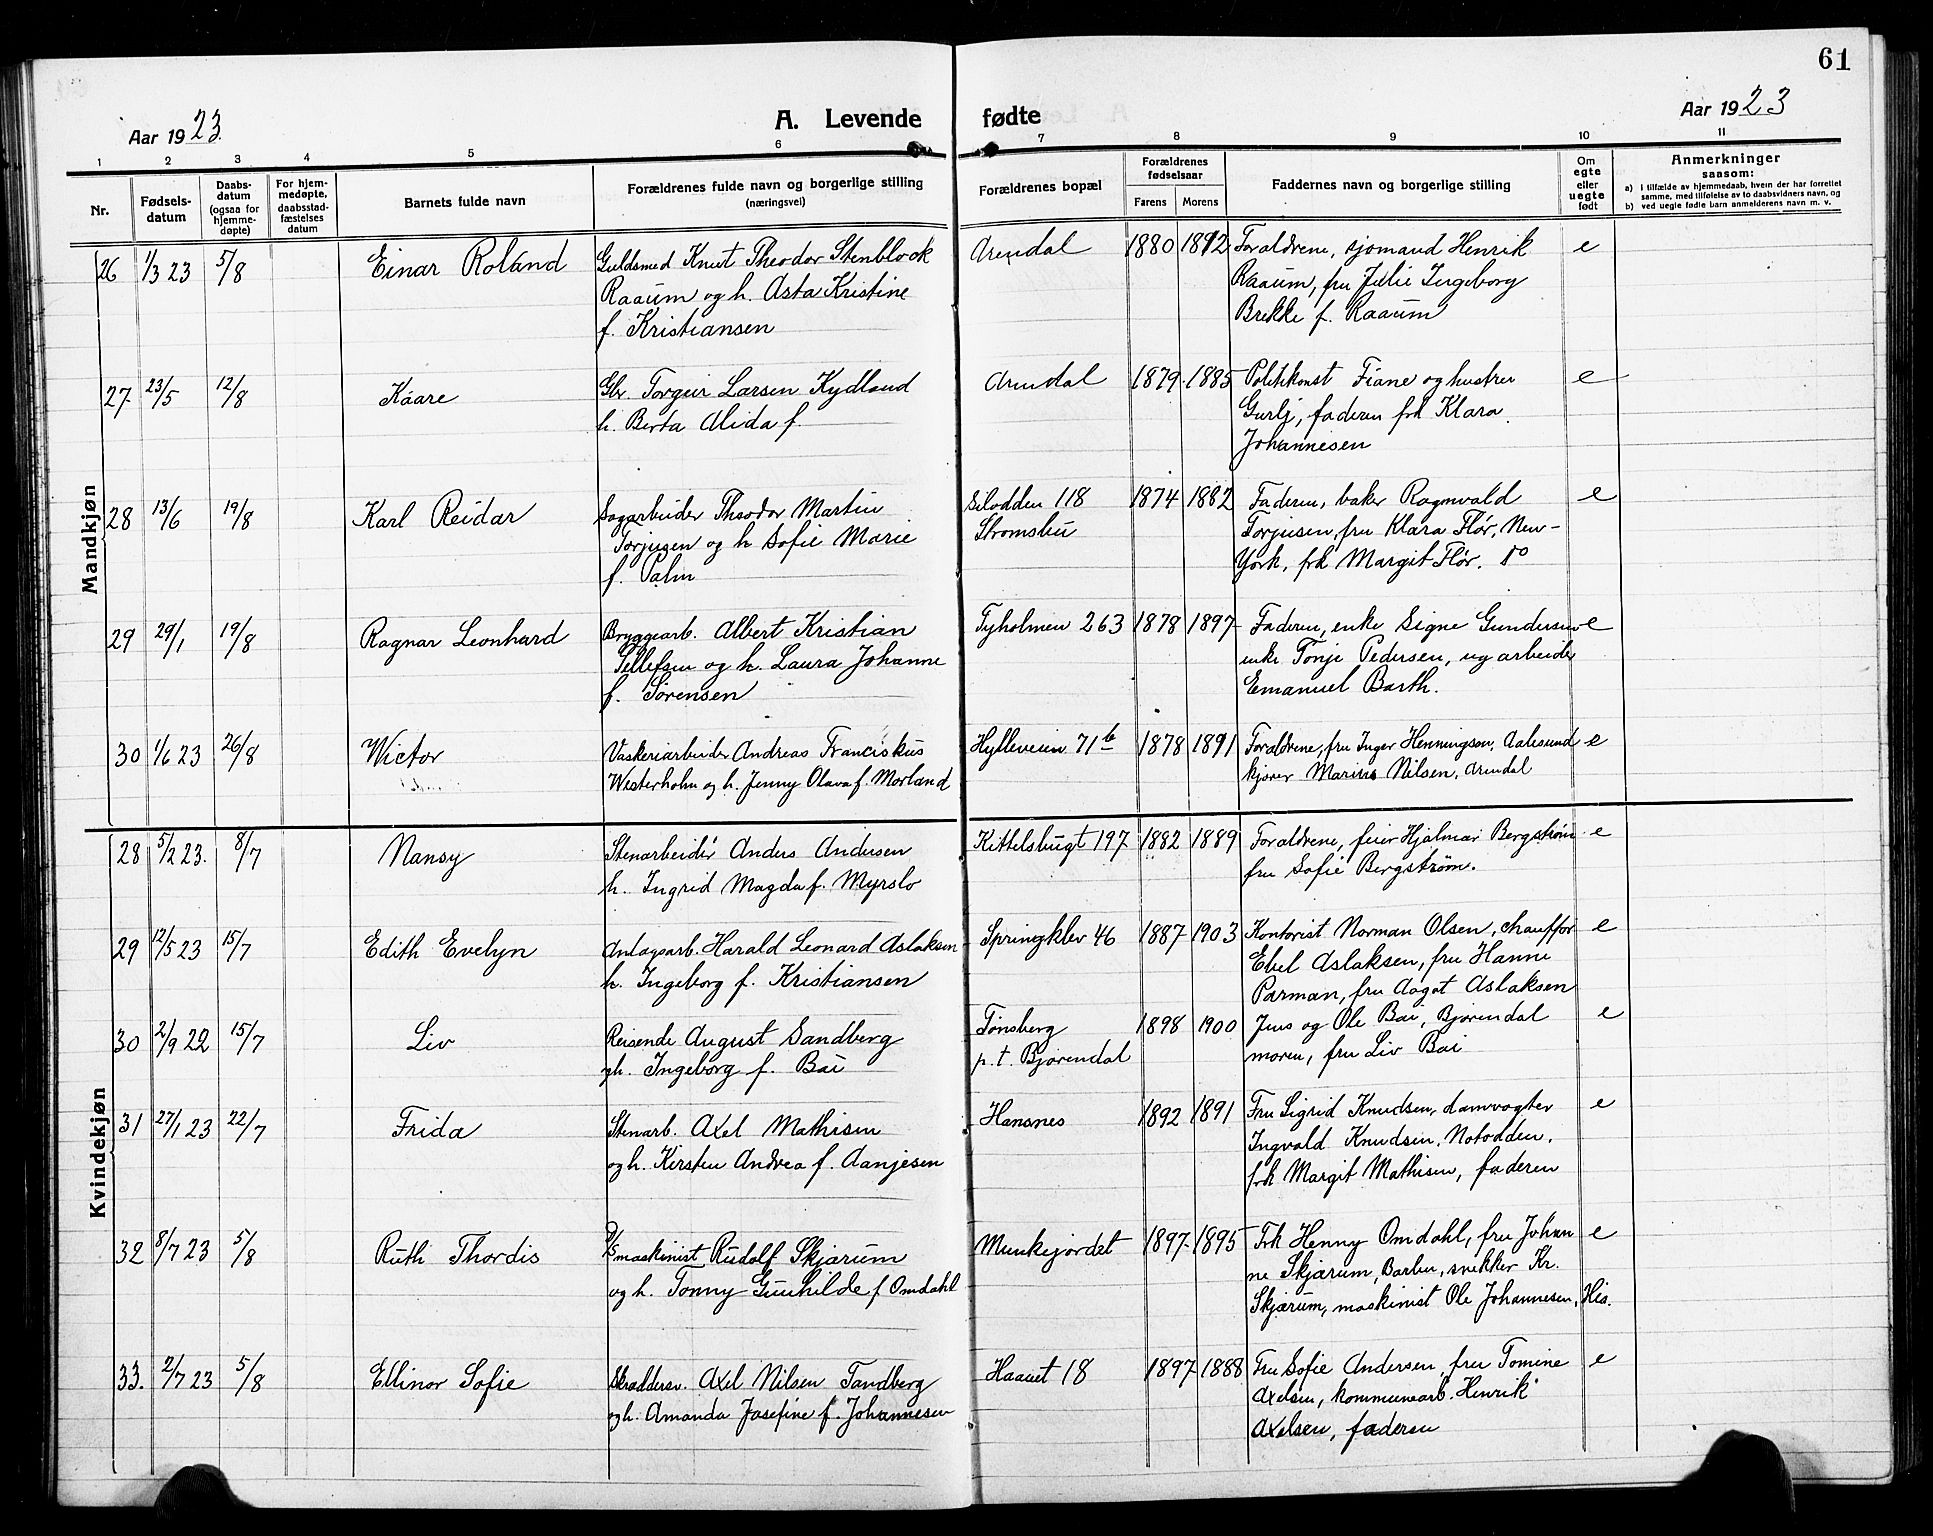 61
Aar 1923.
A. Levende fødte
Aar 1923
1 2 3 4 5 6 7 8 9 10 11
Nr.
Fødsels-
datum
Daabs-
datum
(ogsaa for
hjemme-
døpte)
For hjem-
medøpte,
daabsstad-
fæstelses
datum
Barnets fulde navn
Forældrenes fulde navn og borgerlige stilling
(næringsvei)
Forældrenes bopæl
Forældrenes
fødselsaar
Farens Morens
Faddernes navn og borgerlige stilling
Om
egte
eller
uegte
født
Anmerkninger
saasom:
a) i tilfælde av hjemmedaab, hvem der har forrettet
samme, med tilføielse av to daabsvidners navn, og
b) ved uegte fødte barn anmelderens navn m. v.
Mandkjøn
26 1/3 23 5/8 Einar Roland Guldsmed Knut Theodor Stenblock Arendal 1880 1892 Forældrene, sjømand Henrik e
Raaum og h. Asta Kristine Raaum, fru Julie Ingeborg
f. Kristiansen Brekke f. Raaum
27 23/5 12/8 Kaare Gbr. Torgeir Larsen Kydland Arendal 1879 1885 Politikonst Fiane og hustru e
h. Berta Alida f. Gurlj, faderen frk Klara
Johannesen
28 13/6 19/8 Karl Reidar Sagarbeider Theodor Martin Silodden 118 1874 1882 Faderen, baker Ragnvald e
Torjusen og h Sofie Marie Strømsbu Torjusen, fru Klara Flør, New-
f. Palm York, frk Margit Flør. do
29 29/1 19/8 Ragnar Leonhard Bryggearb. Albert Kristian Tyholmen 263 1878 1897 Faderen, enke Signe Gundersen e
Tellefsen og h. Laura Johanne enke Tonje Pedersen, ug arbeider
f. Sørensen Emanuel Barth.
30 1/6 23 26/8 Wictor Vaskeriarbeider Andreas Franciskus Hylleveien 71b 1878 1891 Forældrene, fru Inger Henningson, Aalesund e
Westerholm og h. Jenny Olava f. Morland kjører Marius Nilsen, Arendal
Kvindekjøn
28 5/2 23. 8/7 Nansy Stenarbeider Anders Andersen Kittelsbugt 197 1882 1889 Forældrene, feier Hjalmar Bergstrøm e
h. Ingrid Magda f. Myrslo fru Sofie Bergstrøm.
29 12/5 23 15/7 Edith Evelyn Anlægsarb. Harald Leonard Aslaksen Springklev 46 1887 1903 Kontorist Norman Olsen, chauffør e
h. Ingeborg f. Kristiansen Ebel Aslaksen, fru Hanne
Parman, fru Aagot Aslaksen
30 2/9 22 15/7 Liv Reisende August Sandberg Tønsberg 1898 1900 Jens og Ole Bai, Bjørendal e
og h. Ingeborg f. Bai p.t. Bjørendal moren, fru Liv Bai
31 27/1 23 22/7 Frida Stenarb. Axel Mathisen Hansnes 1892 1891 Fru Sigrid Knudsen, damvogter e
og h. Kirsten Andrea f. Aanjesen Ingvald Knudsen, Notodden,
frk Margit Mathisen, faderen
32 8/7 23 5/8 Ruth Thordis D/Smaskinist Rudolf Skjærum Munkejordet 1897 1895 Frk Henny Omdahl, fru Johan e
og h. Tonny Gunhilde f Omdahl ne Skjærum, Barbu, snekker Kr.
Skjærum, maskinist Ole Johannesen, His.
33. 2/7 23 5/8 Ellinor Sofie Skræddersv. Axel Nilsen Tandberg Haavet 18 1897 1888 Fru Sofie Andersen, fru Tomine e
og h. Amanda Josefine f. Johannesen Axelsen, kommunearb. Henrik
Axelsen, faderen